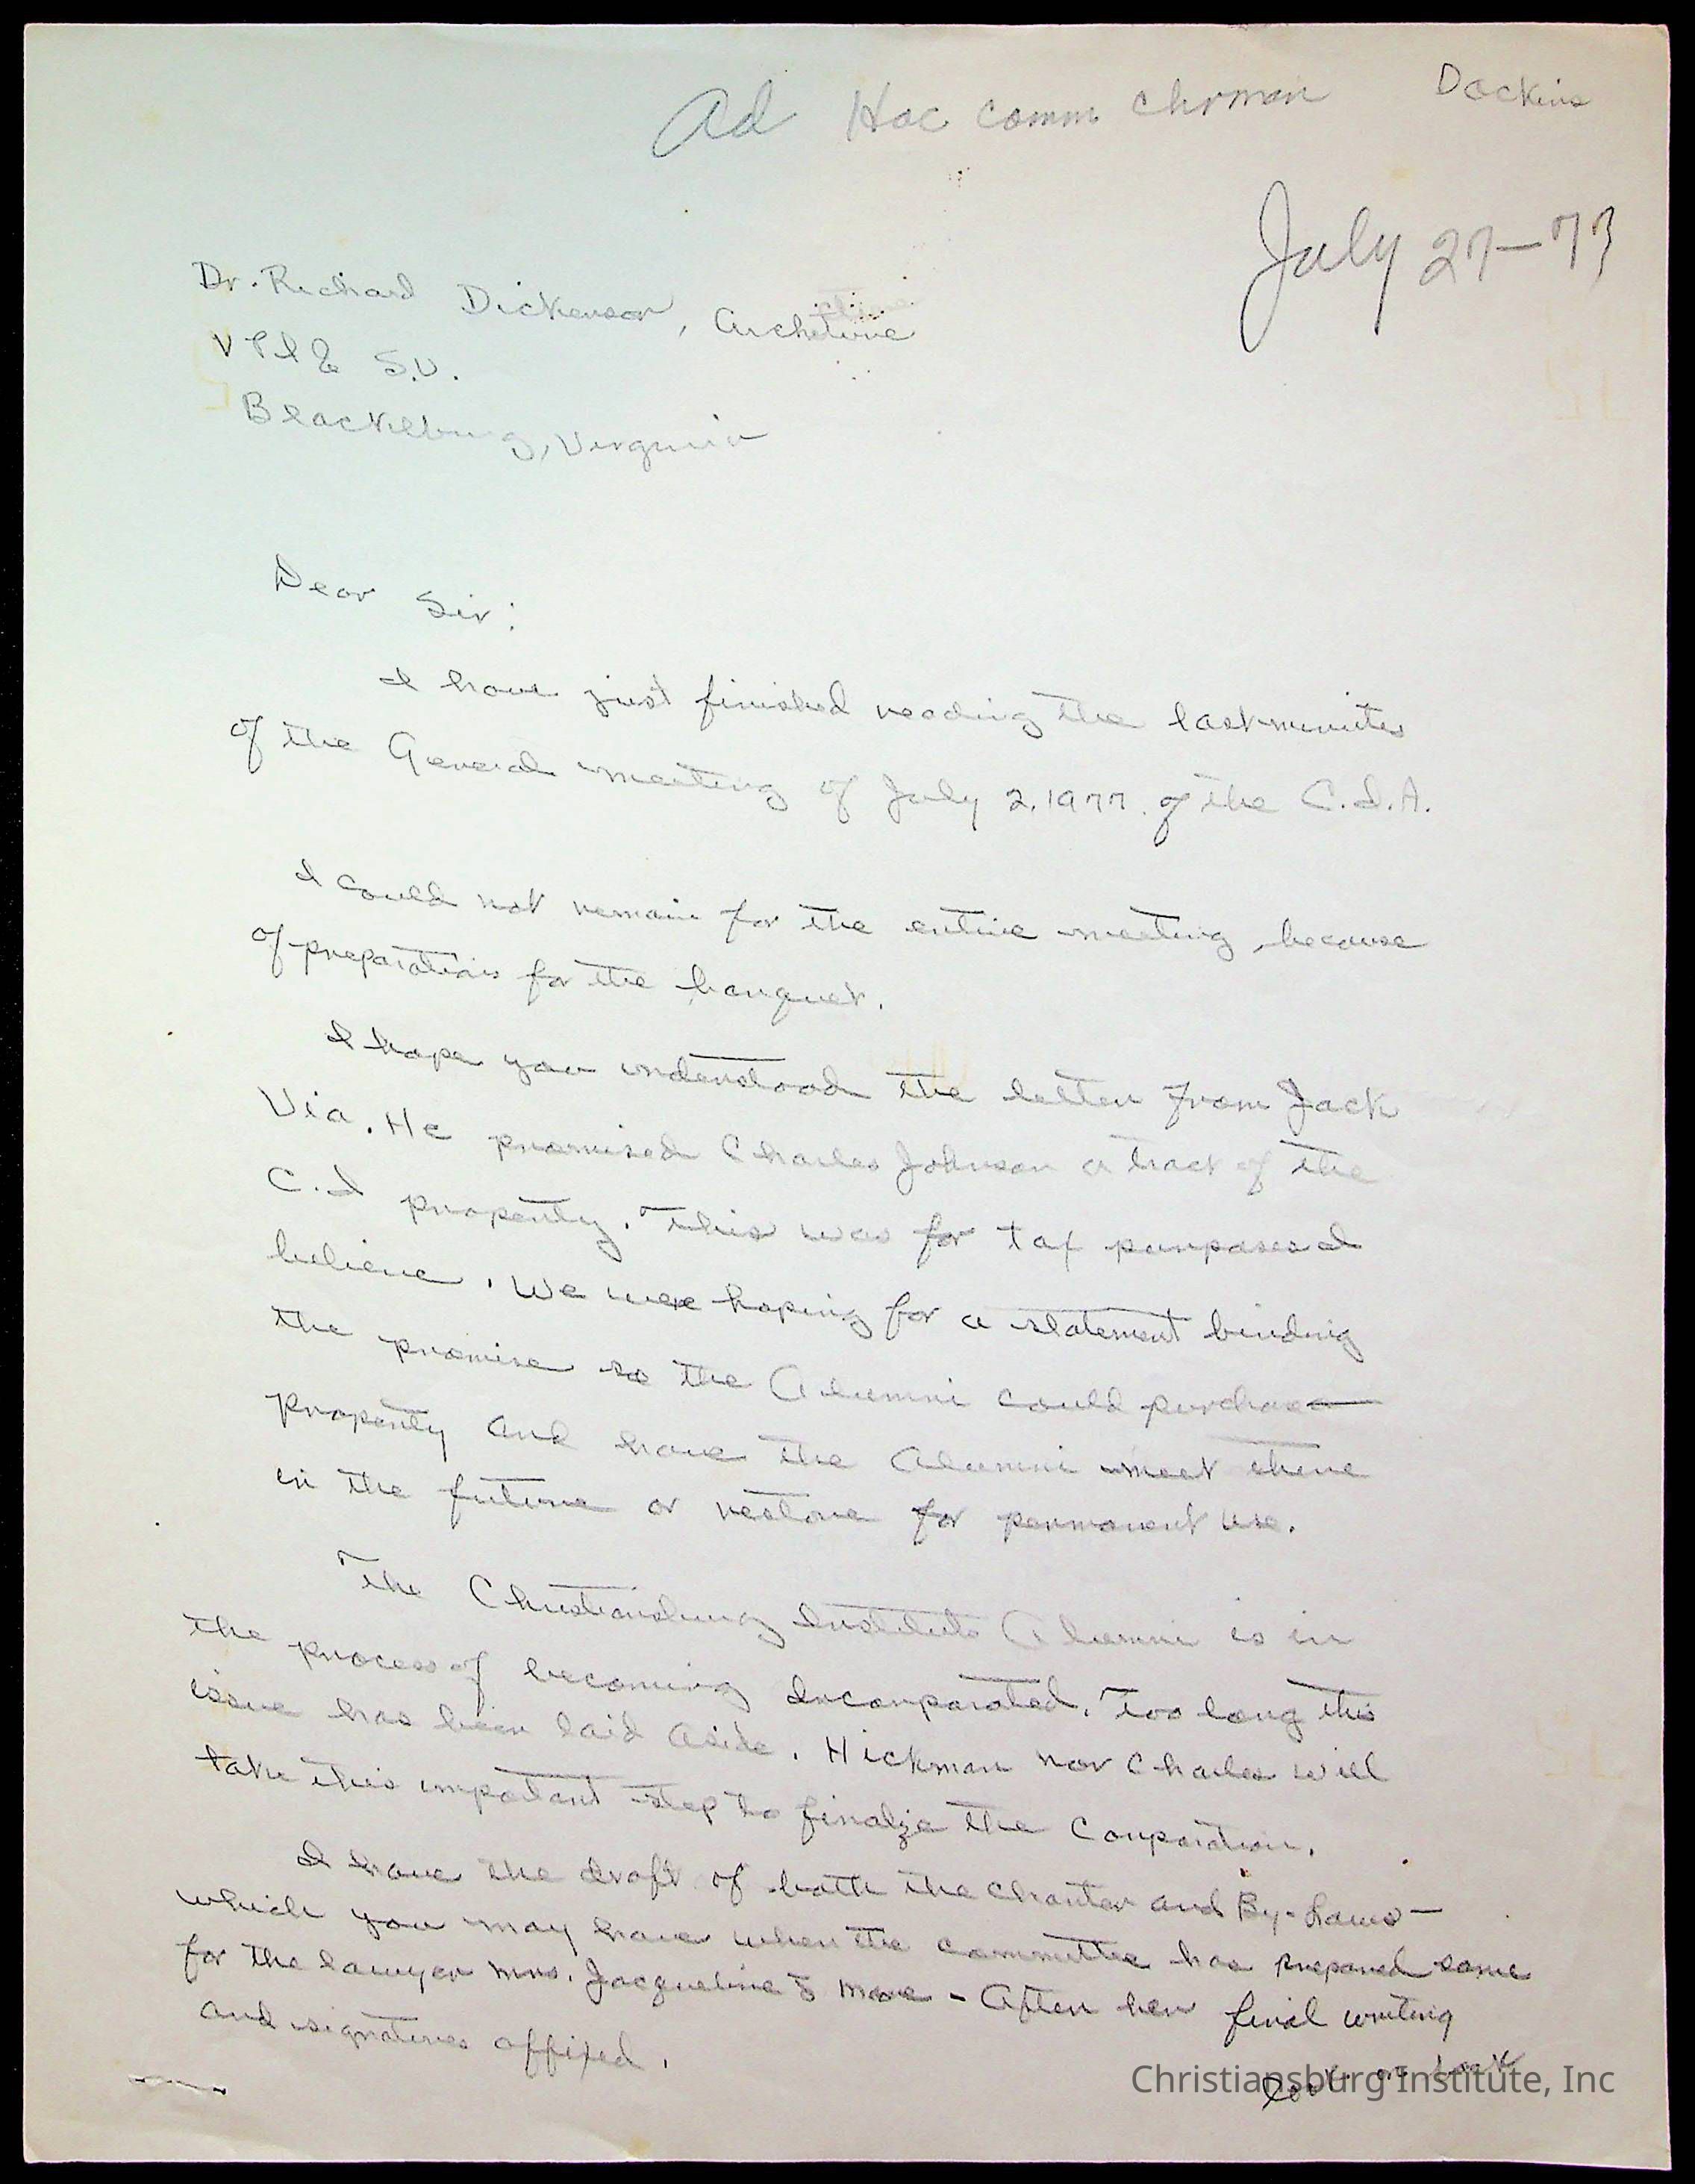 Ad Hoc comm chrman Dockins
July 27-77
Dr. Richard Dickenson,
V P I & S.U.
Blacksburg, Virginia
Dear Sir:
I have just finished reading the last minutes
of the General meeting of July 2, 1977. of the C.I.A.
I could not remain for the entire meeting, because
of preparations for the banquet.
I hope you understood the letter from Jack
Via. He promised Charles Johnson a tract of the
C.I property. This was for tax purposes I
believe. We were hoping for a statement binding
the promise so the Alumni could purchase
property and have the Alumni meet there
in the future or restore for permanent use.
The Christiansburg Institute Alumni is in
the process of becoming Incorporated. Too long this
issue has been laid aside. Hickman nor Charles will
take this impotant step to finalze the Corporation.
I have the draft of both the Charter and By-Laws-
which you may have when the committee has prepared same
for the lawyer Mrs. Jacqueline - After her final writing
and signatures affixed.
Christiansburg Institute, Inc